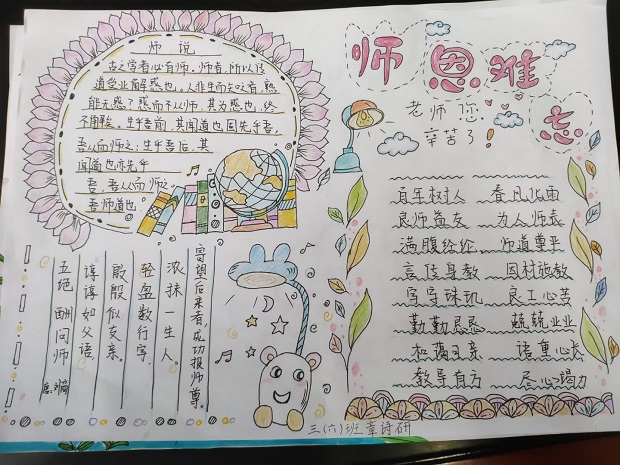 师恩难忘
老师您
辛苦了！
师 说
古之学者必有师。师者，所以传
道受业解惑也。人非生而知之者，孰
能无惑？惑而不从师，其为惑也，终
不解矣。生乎吾前，其闻道也固先乎吾，
吾从而师之；生乎吾后，其
闻道也亦先乎
吾，吾从而师之。
吾师道也
百年树人 春风化雨
良师益友 为人师表
满腹经纶 师道尊严
言传身教 因材施教
字字珠玑 良工心苦
勤勤恳恳 兢兢业业
和蔼可亲 语重心长
教导有方 尽心竭力
五绝 酬问师
殷殷似友亲。
谆谆如父语，
轻盈数行字，
浓抹一生人。
寄望后来者，成功报师尊。
三(六)班 章诗研